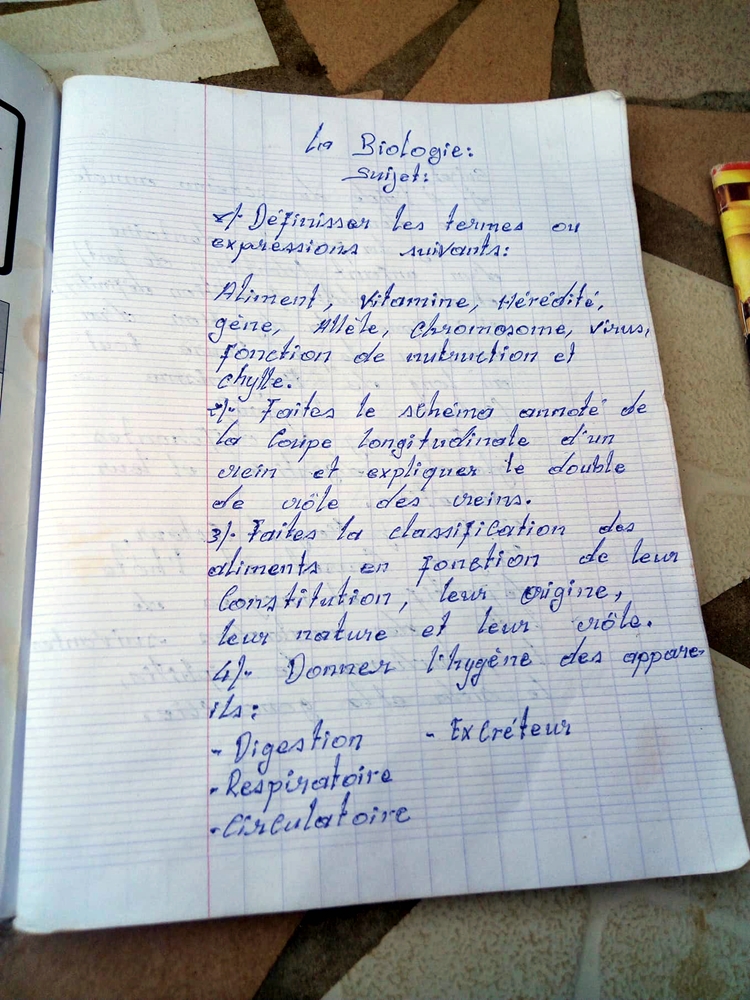 La Biologie:
Sujet:
1)- Définisser les termes ou
expressions suivants:
Aliment, Vitamine, Hérédité,
gène, Allèle, Chromosome, Virus,
fonction de nutruction et
chylle.
2)- Faites le schéma annoté de
la Coupe longitudinale d'un
rein et expliquer le double
de rôle des reins.
3)- Faites la classification des
aliments en fonction de leur
Constitution, leur origine,
leur nature et leur rôle.
4)- Donner l'hygène des appare-
ils:
- Digestion - Excréteur
- Respiratoire
- Circulatoire